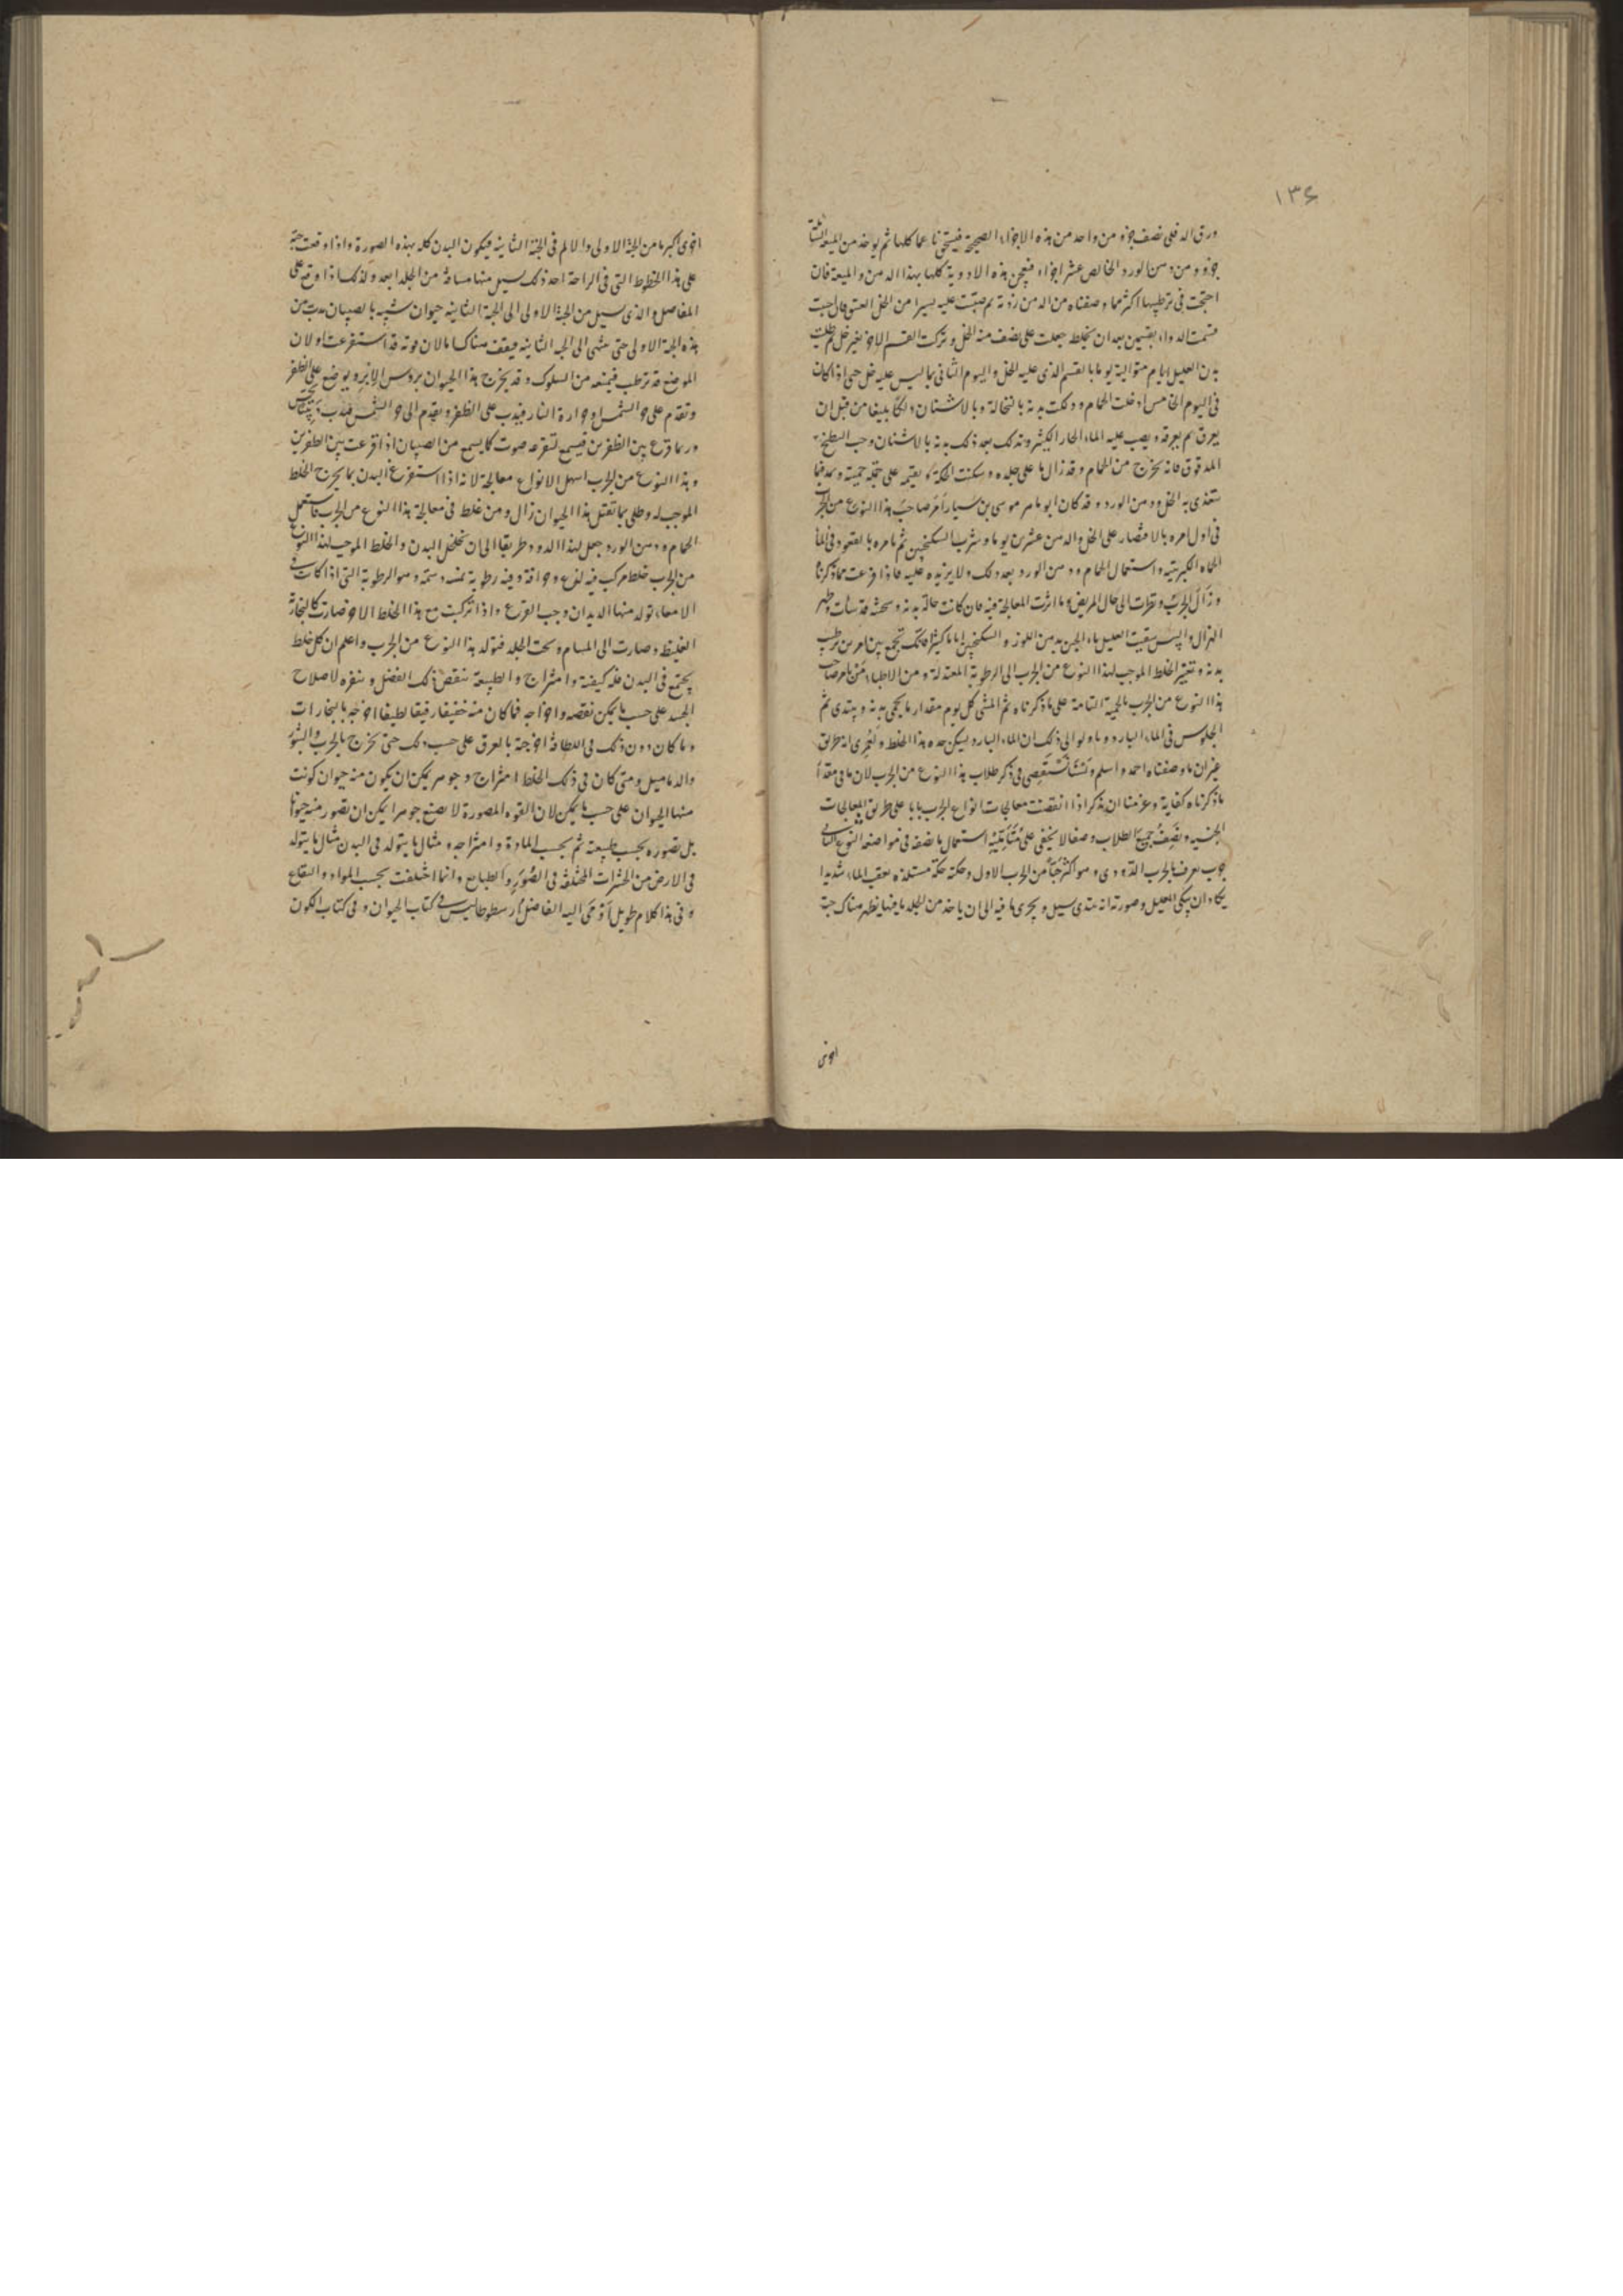 ١٣۶
ورق الدفلى نصف جزو من واحد من هذه الاجزاء الصحيحة فيسحق ناعما كلها ثم يوخذ من الميعة
جزو ومن دهن الورد الخالص عشر اجزاء فيعجن هذه الادوية كلها بهذا الدهن والميعة فان
احتجت فى ترطيبها اكثر مما وصفناه من الدهن زدته ثم صببت عليه يسيرا من الخل العتيق وان احببت
قسمت الدواء بقسمين بعد ان يخلط جعلت على نصف منه الخل وتركت القسم الاخر بغير خل ثم طليت
بدن العليل ايام متوالية يوما بالقسم الذى عليه الخل واليوم الثانى بما ليس عليه خل حتى اذا كان
فى اليوم الخامس ادخلت الحمام ودلكت بدنه بالنخالة وبالاشنان دلكا بليغا من قبل ان
يعرق ثم يعرقه ويصب عليه الماء الحار الكثير وتدلك بعد ذلك بدنه بالاشنان وحب البطيخ
المدقوق فانه يخرج من الحمام وقد زال ما على جلده وسكنت الحكة
يتغذى به الخل ودهن الورد وقد كان ابو ماهر موسى بن سيار امر صاحب هذا النوع من الجرب
فى اول امره بالاقتصار على الخل والدهن عشرين يوما وشرب السكنجبين ثم يامره بالقعود فى الماء
الماه الكبريتيه واستعمال الحمام ودهن الورد بعد ذلك ولا يزيده عليه فاذا فرغت مما ذكرنا
وزال الجرب ونظرت الى حال المريض وما اثرت المعالجة فيه فان كانت حالة بدنه وسحنته قد ساءت وظهر
الهزال واليبس سقيت العليل ماء الجبن بدهن اللوز والسكنجبين اياما كثيرا فانك تجمع بين امرين ترطب
بدنه وتغير الخلط الموجب لهذا النوع من الجرب الى الرطوبة المعتدلة ومن الاطباء من يامر صاحب
هذا النوع من الجرب بالحمية التامة على ما ذكرناه ثم المشى كل يوم مقدار ما يحمى بدنه ويبتدى ثم
الجلوس فى الماء البارد وماولوا الى ذلك ان الماء البارد يسكن حدة هذا الخلط ولعمرى انه طريق
غير ان ما وصفناه احمد واسلم فى ذكر طلاب هذا النوع من الجرب لان ما فى
ما ذكرناه كفاية وعزمنا ان نذكر اذا انقضت معالجات انواع الجرب بابا على طريق المعالجات
الجنسيه ونصف جميع الطلاب وصفا لا يخفى على استعمال ما نصفه فى مواضعه النوع الثانى
جرب يعرف بالجرب الدودى وهو اكثر من الجرب الاول وحكته حكة مستلذه يعقب الماء شديدا
يكاد ان يبكى العليل وصورته انه يبتدى يسيل ويجرى ما فيه الى ان ياخذ من الجلد ما يظهر هناك حبة
اخرى
اخرى اكبر ما من الحبة الاولى والالم فى الحبة الثانيه فيكون البدن كله بهذه الصورة واذا وقعت حبة
على هذا الخطوط التى فى الراحة احد ذلك يسيل منها مسافة من الجلد ابعد وكذلك اذا وقع على
المفاصل والذى يسيل من الحبة الاولى الى الحبة الثانيه حيوان شبيه بالصيبان يدب من
هذه الحبة الاولى حتى ينتهى الى الحبه الثانيه فيقف هناك اما لان قوته قد استفرغت او لان
الموضع قد ترطب فيمنعه من السلوك وقد يخرج هذا الحيوان بروس الابر ويوضع على الظفر
وتقدم على حر الشمس او حرارة النار فيدب على الظفر ويقدم الى حر الشمس فيدب
وربما قرع بين الظفرين فيسمع لتقرعه صوت كما يسمع من الصيبان اذا قرعت بين الظفرين
وهذا النوع من الجرب اسهل الانواع معالجة لانه اذا استفرغ البدن بما يخرج الخلط
الموجب له وطلى بما تقتل هذا الحيوان زال ومن غلط فى معالجة هذا النوع من الجرب فاستعمل
الحمام ودهن الورد جعل لهذا الدود طريقا الى ان تخلخل البدن والخلط الموجب لهذا النوع
من الجرب خلط مركب فيه لذع وحرافة وفيه رطوبة وهو الرطوبة التى اذا كانت فى
الامعاء تولد منها الديدان وحب القرع واذا تركبت مع هذا الخلط الاخر صارت كالبخارة
الغليظه وصارت الى المسام وتحت الجلد فتولد هذا النوع من الجرب واعلم ان كل خلط
يجتمع فى البدن فله كيفية وامتزاج والطبيعة تنقص ذلك الفضل وتنفره لاصلاح
الجسد على حسب ما يمكن نقصه واخراجه فما كان منه خفيفا رقيقا لطيفا اخرجه بالبخارات
وما كان دون ذلك فى اللطافة اخرجته بالعرق على حسب ذلك حتى تخرج بالجرب والبثور
والدماميل ومتى كان فى ذلك الخلط امتزاج وجوهر يمكن ان يكون منه حيوان كونت
منها الحيوان على حسب ما يمكن لان القوه المصورة لا تضيع جوهرا يمكن ان تصور منه حيوانا
بل تصوره بحسب طبيعته ثم بحسب المادة وامتزاجه ومثال ما يتولد فى البدن مثال ما يتولد
فى الارض من الحشرات المختلفة فى الصور والطبايع وانما اختلفت بحسب المواد والبقاع
وفى هذا كلام طويل اومى اليه الفاضل ارسطوطاليس فى كتاب الحيوان وفى كتاب الكون